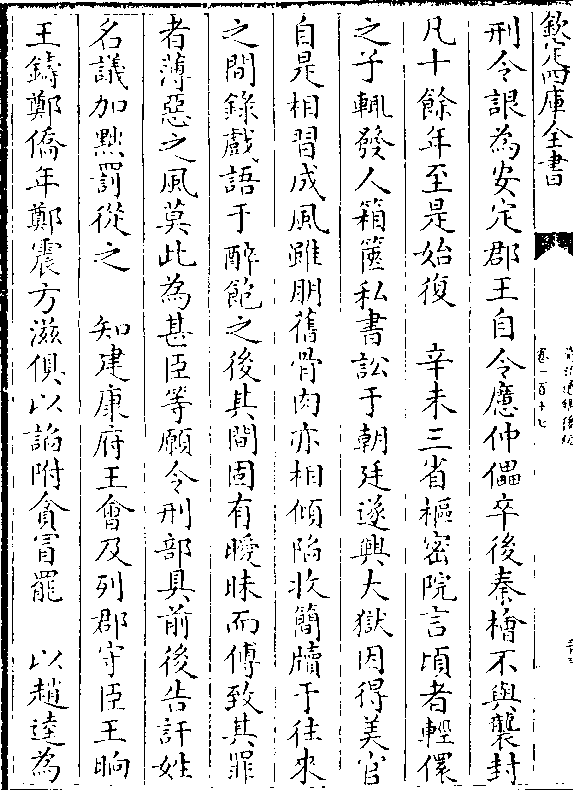 欽定四庫全書
刑令詪為安定郡王自令應仲儡卒後秦檜不與襲封
凡十餘年至是始復　辛未三省樞密院言頃者輕儇
之子輒發人箱篋私書訟于朝廷遂興大獄因得美官
自是相習成風雖朋舊骨肉亦相傾陷收簡牘于往來
之間錄戲語于醉飽之後其間固有曖昧而傅致其罪
者薄惡之風莫此為甚臣等願令刑部具前後告訐姓
名議加黜罰從之　知建康府王㑹及列郡守臣王晌
王鑄鄭僑年鄭震方滋俱以諂附貪冒罷　以趙逵為